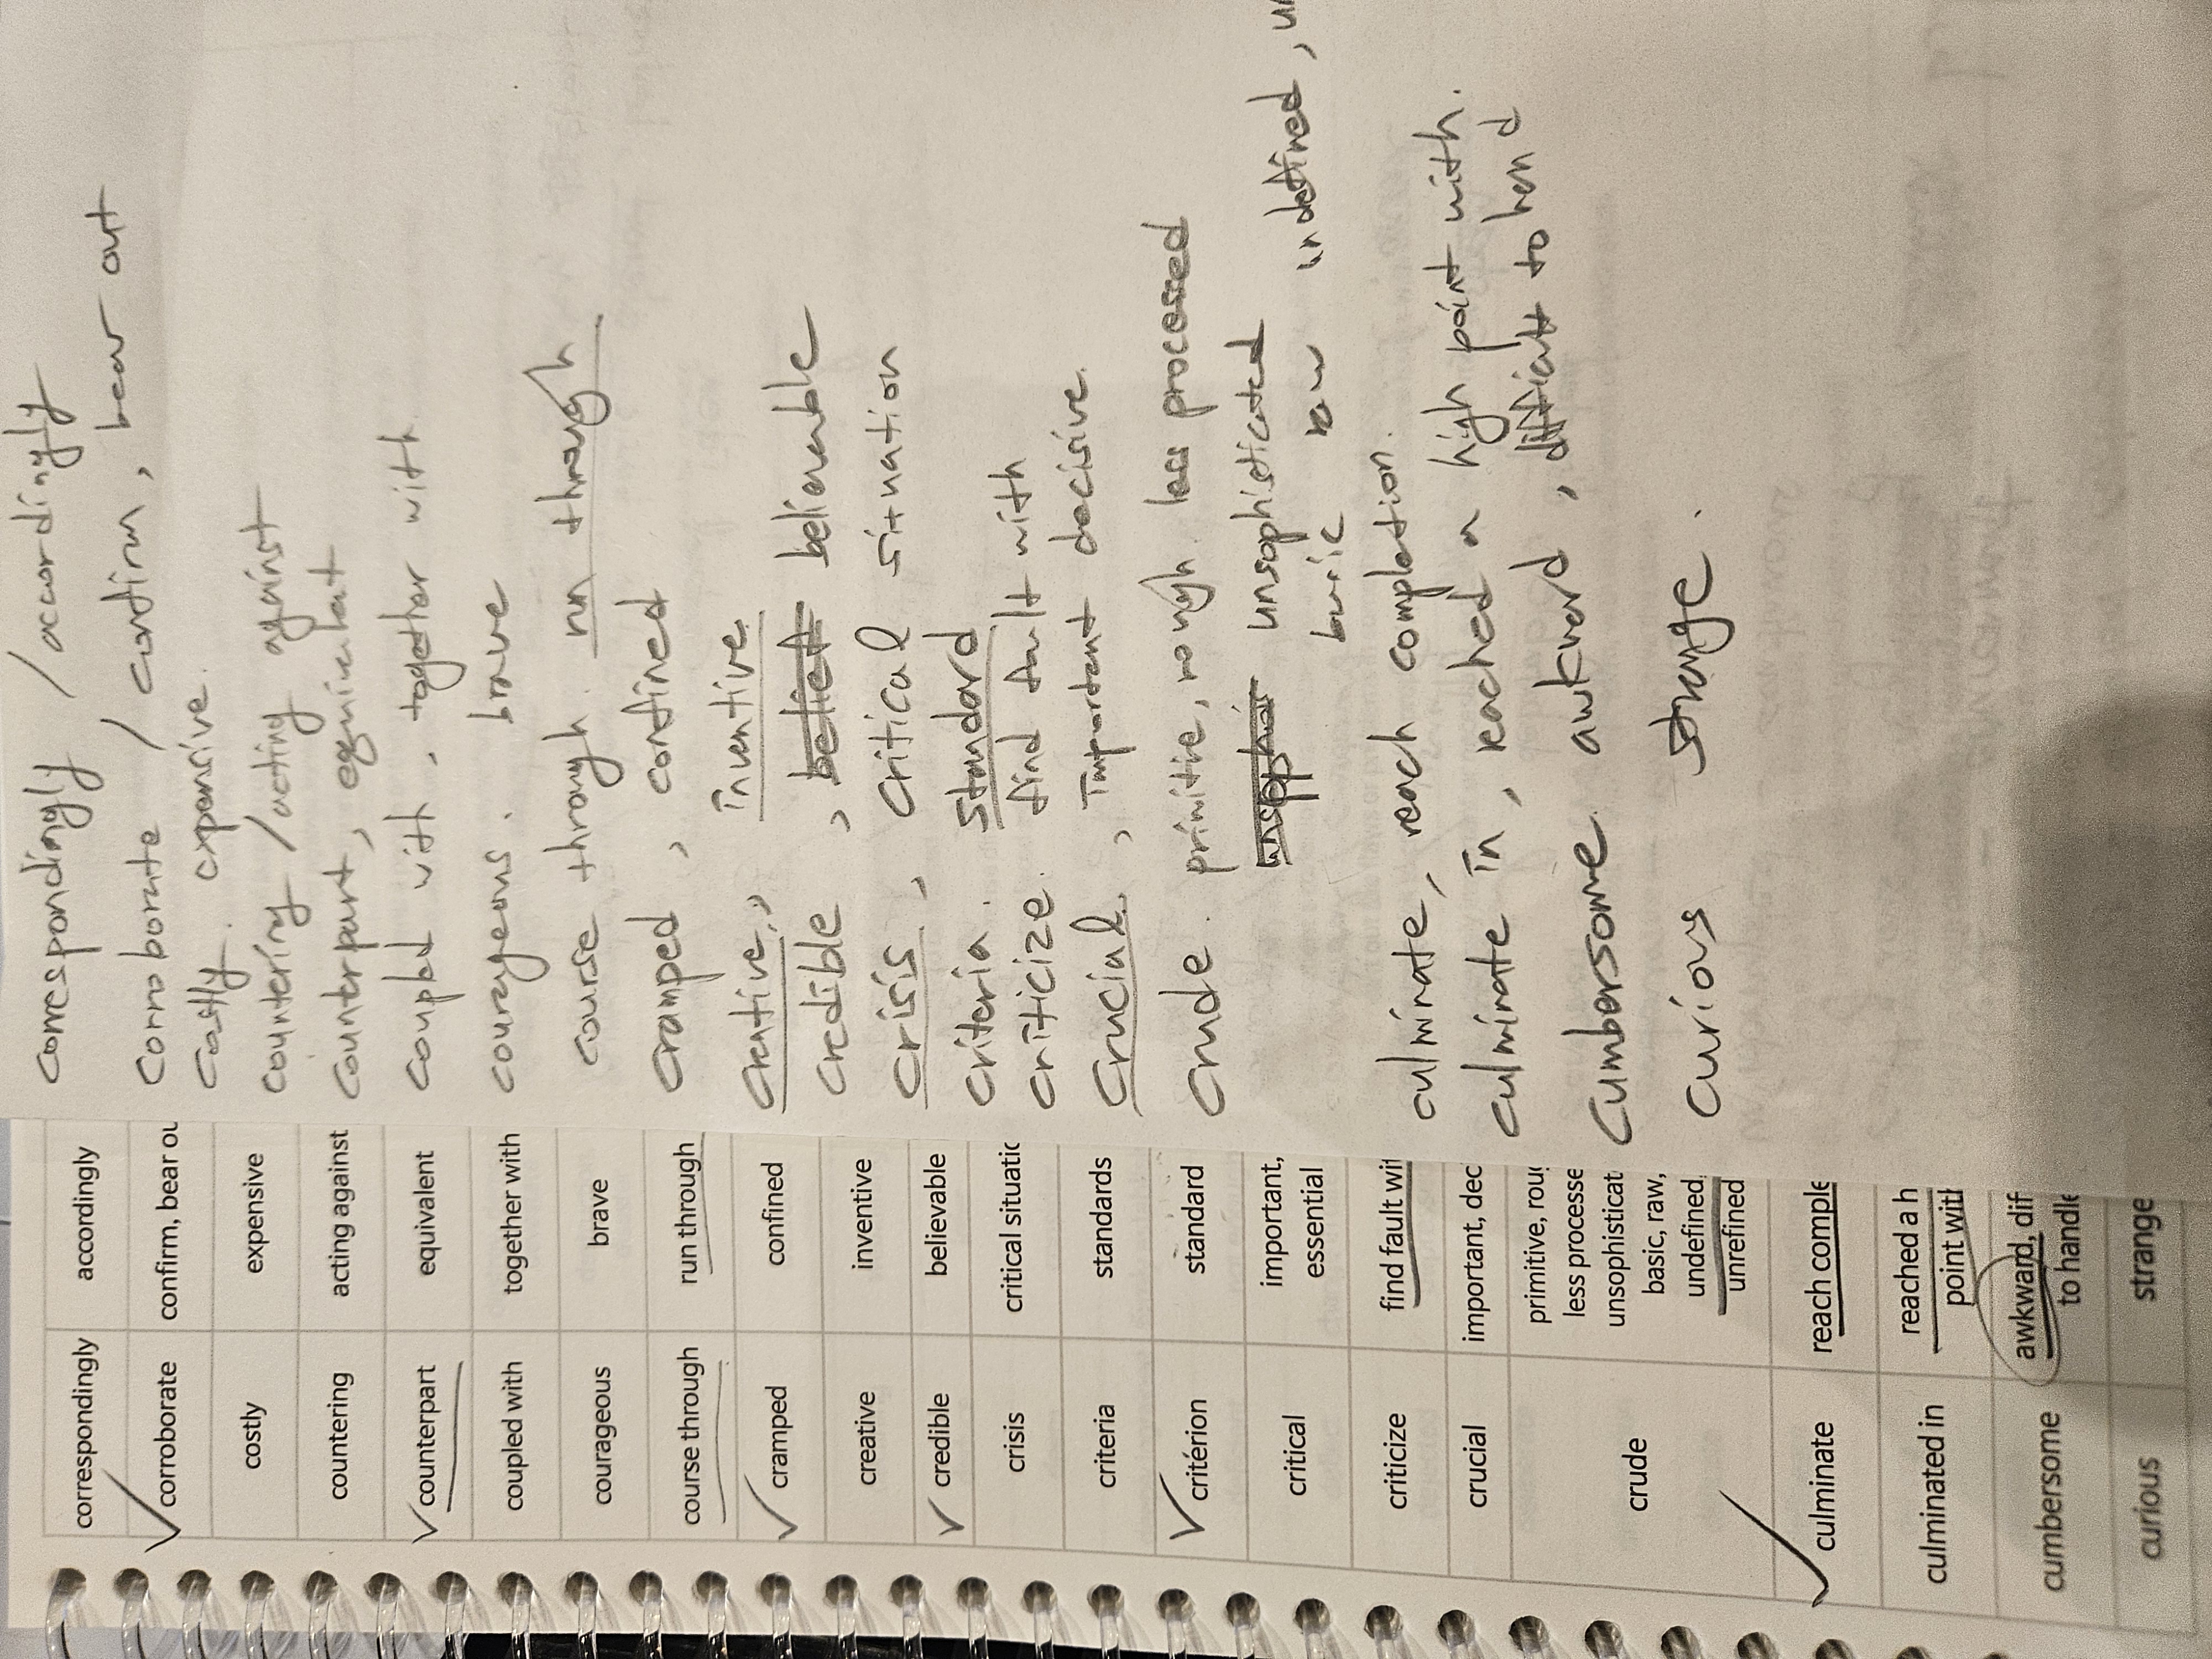 correspondingly accordingly
corroborate confirm, bear ou
costly expensive
countering acting against
counterpart equivalent
coupled with together with
courageous brave
course through run through
cramped confined
creative inventive
credible believable
crisis critical situatic
criteria standards
critérion standard
critical important,
essential
criticize find fault wit
crucial important, dec
crude primitive, roug
less processe
unsophisticat
basic, raw,
undefined,
unrefined
culminate reach comple
culminated in reached a h
point with
cumbersome awkward, dif
to handle
curious strange
correspondingly / accordingly
corroborate / confirm, bear out
costly. expensive.
countering / acting against
counterpart, equivalent
coupled with, together with
courageous. brave
course through. run through
cramped, confined
creative, inventive
credible, belief believable
crisis, critical situation
criteria. standard
criticize. find fault with
crucial, important decisive.
crude. primitive, rough. less processed
unsophisticated
basic raw undefined,
culminate, reach completion.
culminate in, reached a high point with.
cumbersome. awkward, difficult to hand
curious strange.